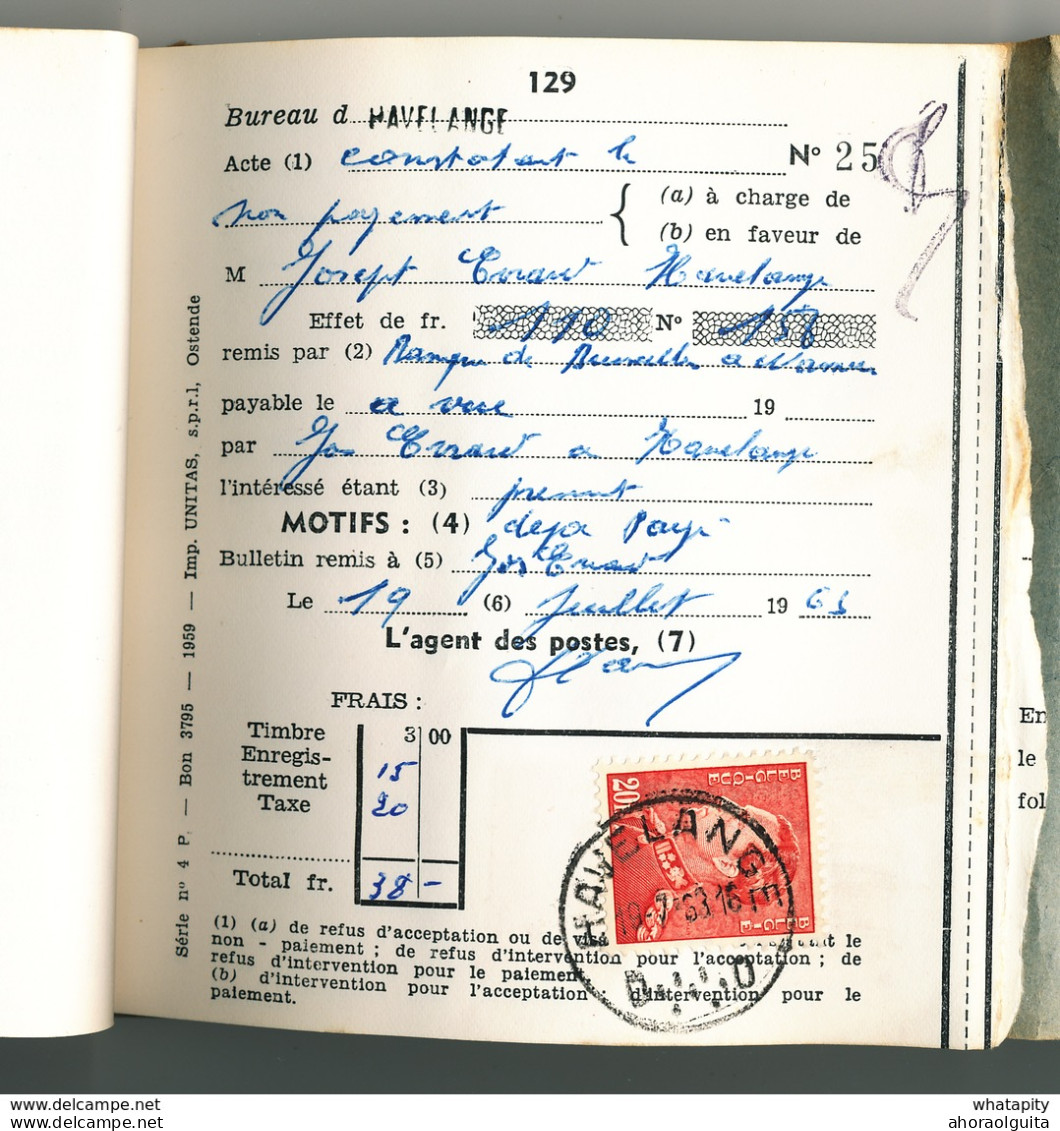 129
Bureau d HAVELANGE
Acte (1) constatant le N° 25
non payement (a) à charge de
(b) en faveur de
M Joseph Evrard Havelange
Effet de fr. 110 N° 158
remis par (2) Banque de Bruxelles a Namur
payable le a vue 19
par Jos Evrard a Havelange
l'intéressé étant (3) present
MOTIFS : (4) deja Payé
Bulletin remis à (5) Jos Evrard
Le 19 (6) juillet 19 63
L'agent des postes, (7)
FRAIS :
Timbre 3 00
Enregis-
trement 15
Taxe 20
Total fr. 38 -
BELGIQUE
BELGIE
20
HAVELANGE
19-7-63 16
(1) (a) de refus d'acceptation ou de visa
non - paiement ; de refus d'intervention pour l'acceptation ; de
refus d'intervention pour le paiement
(b) d'intervention pour l'acceptation ; d'intervention pour le
paiement.
Série n° 4 P. — Bon 3795 — 1959 — Imp. UNITAS, s.p.r.l, Ostende
En
le
fol
whatapity
ahoraolguita